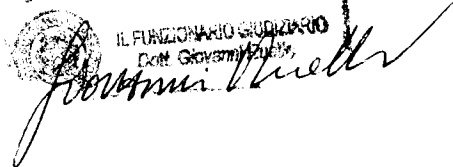 IL FUNZIONARIO GIUDIZIARIO
Dott. Giovanni
Giovanni